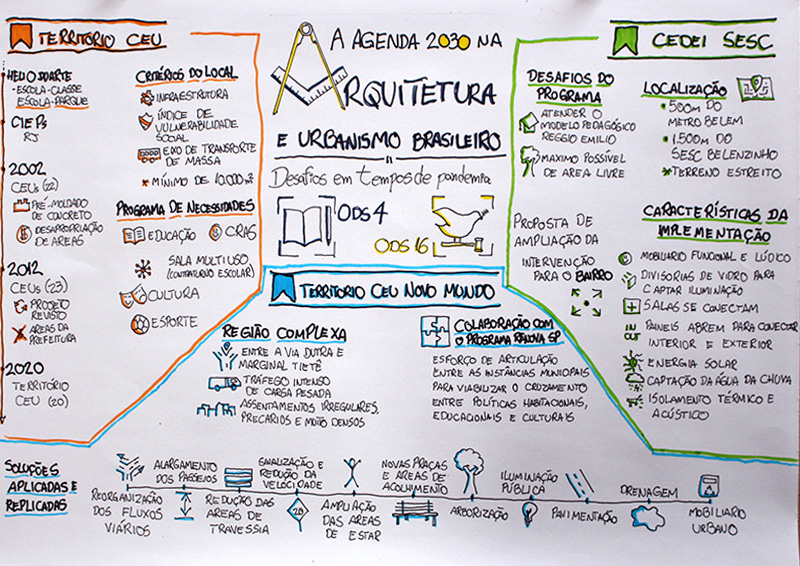 TERRITÓRIO CEU
HELIO DUARTE
- ESCOLA-CLASSE
ESCOLA-PARQUE
CIEPs
RJ
2002
CEUs (22)
PRÉ-MOLDADO
DE CONCRETO
DESAPROPRIAÇÃO
DE AREAS
2012
CEUs (23)
PROJETO
REVISTO
AREAS DA
PREFEITURA
2020
TERRITÓRIO
CEU (20)
CRITÉRIOS DO LOCAL
INFRAESTRUTURA
ÍNDICE DE
VULNERABILIDADE
SOCIAL
EIXO DE TRANSPORTE
DE MASSA
* MÍNIMO DE 10.000 m²
PROGRAMA DE NECESSIDADES
EDUCAÇÃO
CRAS
SALA MULTIUSO
(CONTRATURNO ESCOLAR)
CULTURA
ESPORTE
A AGENDA 2030 NA
ARQUITETURA
E URBANISMO BRASILEIRO
Desafios em tempos de pandemia
ODS 4
ODS 16
TERRITÓRIO CEU NOVO MUNDO
REGIÃO COMPLEXA
ENTRE A VIA DUTRA E
MARGINAL TIETÊ
TRÁFEGO INTENSO
DE CARGA PESADA
ASSENTAMENTOS IRREGULARES,
PRECÁRIOS E MUITO DENSOS
COLABORAÇÃO COM
O PROGRAMA RENOVA SP
ESFORÇO DE ARTICULAÇÃO
ENTRE AS INSTÂNCIAS MUNICIPAIS
PARA VIABILIZAR O CRUZAMENTO
ENTRE POLÍTICAS HABITACIONAIS,
EDUCACIONAIS E CULTURAIS
CEDEI SESC
DESAFIOS DO
PROGRAMA
ATENDER O
MODELO PEDAGÓGICO
REGGIO EMILIO
MAXIMO POSSÍVEL
DE AREA LIVRE
PROPOSTA DE
AMPLIAÇÃO DA
INTERVENÇÃO
PARA O BAIRRO
LOCALIZAÇÃO
• 500m DO
METRÔ BELEM
• 1.500m DO
SESC BELENZINHO
• TERRENO ESTREITO
CARACTERÍSTICAS DA
IMPLEMENTAÇÃO
MOBILIARIO FUNCIONAL E LÚDICO
DIVISORIAS DE VIDRO PARA
CAPTAR ILUMINAÇÃO
SALAS SE CONECTAM
IN OUT PAINEIS ABREM PARA CONECTAR
INTERIOR E EXTERIOR
ENERGIA SOLAR
CAPTAÇÃO DA ÁGUA DA CHUVA
ISOLAMENTO TÉRMICO E
ACÚSTICO
SOLUÇÕES
APLICADAS E
REPLICADAS
REORGANIZAÇÃO
DOS FLUXOS
VIÁRIOS
ALARGAMENTO
DOS PASSEIOS
REDUÇÃO DAS
AREAS DE
TRAVESSIA
SINALIZAÇÃO E
REDUÇÃO DA
VELOCIDADE
20
AMPLIAÇÃO
DAS AREAS
DE ESTAR
NOVAS PRAÇAS
E AREAS DE
ACOLHIMENTO
ARBORIZAÇÃO
ILUMINAÇÃO
PÚBLICA
PAVIMENTAÇÃO
DRENAGEM
MOBILIARIO
URBANO